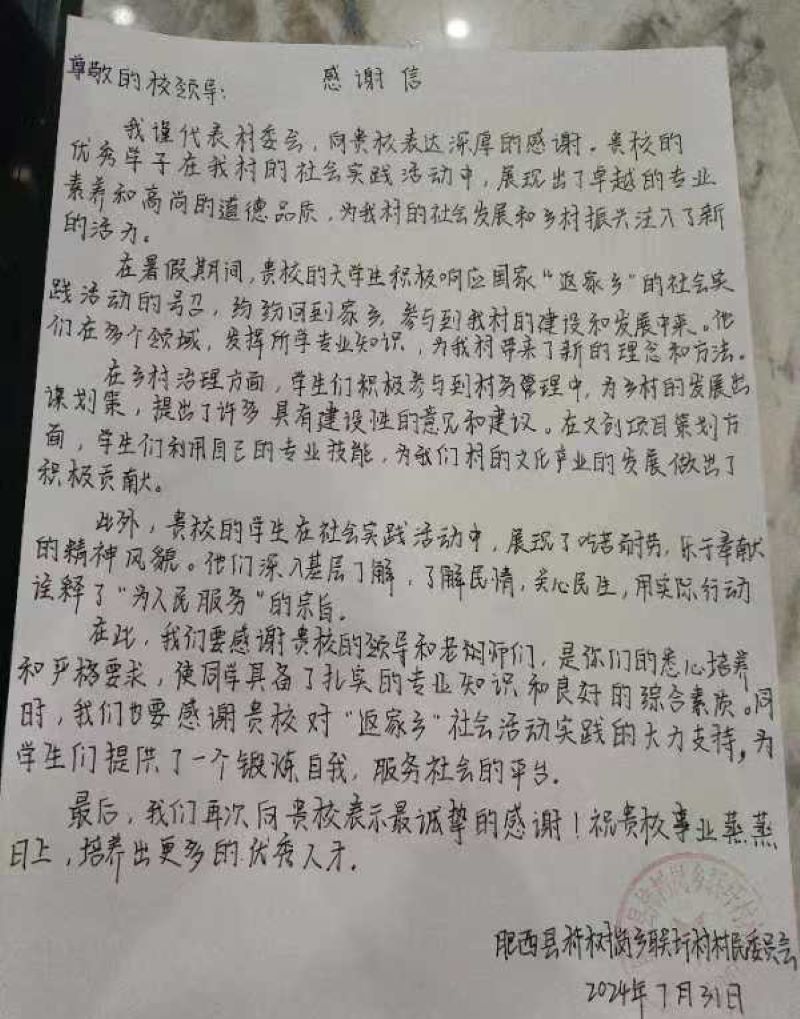 感谢信
尊敬的校领导:
我谨代表村委会，向贵校表达深厚的感谢。贵校的
优秀学子在我村的社会实践活动中，展现出了卓越的专业
素养和高尚的道德品质，为我村的社会发展和乡村振兴注入了新
的活力。
在暑假期间，贵校的大学生积极响应国家“返家乡”的社会实
践活动的号召，纷纷回到家乡，参与到我村的建设和发展中来。他
们在多个领域，发挥所学专业知识，为我村带来了新的理念和方法。
在乡村治理方面，学生们积极参与到村务管理中，为乡村的发展出
谋划策，提出了许多具有建设性的意见和建议。在文创项目策划方
面，学生们利用自己的专业技能，为我们村的文化产业的发展做出了
积极贡献。
此外，贵校的学生在社会实践活动中，展现了吃苦耐劳，乐于奉献
的精神风貌。他们深入基层了解，了解民情，关心民生，用实际行动
诠释了“为人民服务”的宗旨。
在此，我们要感谢贵校的领导和老师们，是你们的悉心培养
和严格要求，使同学具备了扎实的专业知识和良好的综合素质。同
时，我们也要感谢贵校对“返家乡”社会活动实践的大力支持，为
学生们提供了一个锻炼自我，服务社会的平台。
最后，我们再次向贵校表示最诚挚的感谢！祝贵校事业蒸蒸
日上，培养出更多的优秀人才。
肥西县柿树岗乡联圩村村民委员会
2024年7月31日